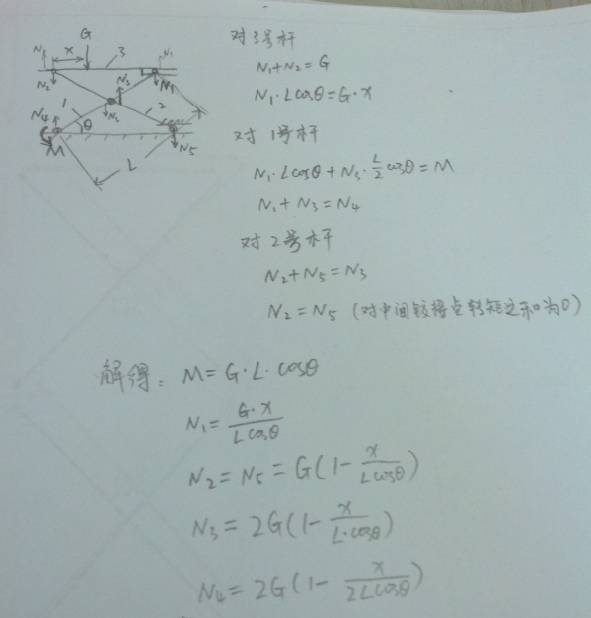 G
N₁
x
3
N₁
N₂
N₃
N₁
N₄
1
θ
N₃
2
M
N₅
L
对3号杆
N₁+N₂=G
N₁·Lcosθ=G·x
对1号杆
N₁·Lcosθ+N₃·L/2cosθ=M
N₁+N₃=N₄
对2号杆
N₂+N₅=N₃
N₂=N₅ (对中间铰接点转矩之和为0)
解得: M=G·L·cosθ
N₁=G·x/Lcosθ
N₂=N₅=G(1-x/Lcosθ)
N₃=2G(1-x/L·cosθ)
N₄=2G(1-x/2Lcosθ)